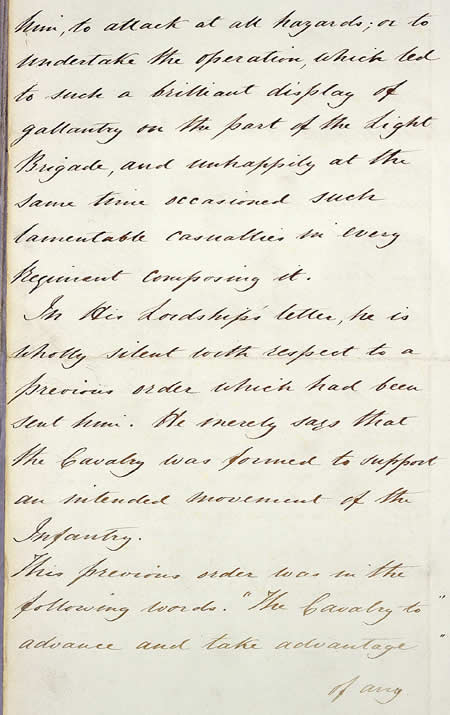 him, to attack at all hazards; or to
undertake the operation, which led
to such a brilliant display of
gallantry on the part of the Light
Brigade, and unhappily at the
same time occasioned such
lamentable casualties in every
Regiment composing it.
In His Lordship's letter, he is
wholly silent with respect to a
previous order which had been
sent him. He merely says that
the Cavalry was formed to support
an intended movement of the
Infantry.
This previous order was in the
following words. "The Cavalry to "
advance and take advantage "
of any